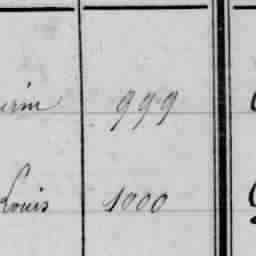 999
Louis 1000